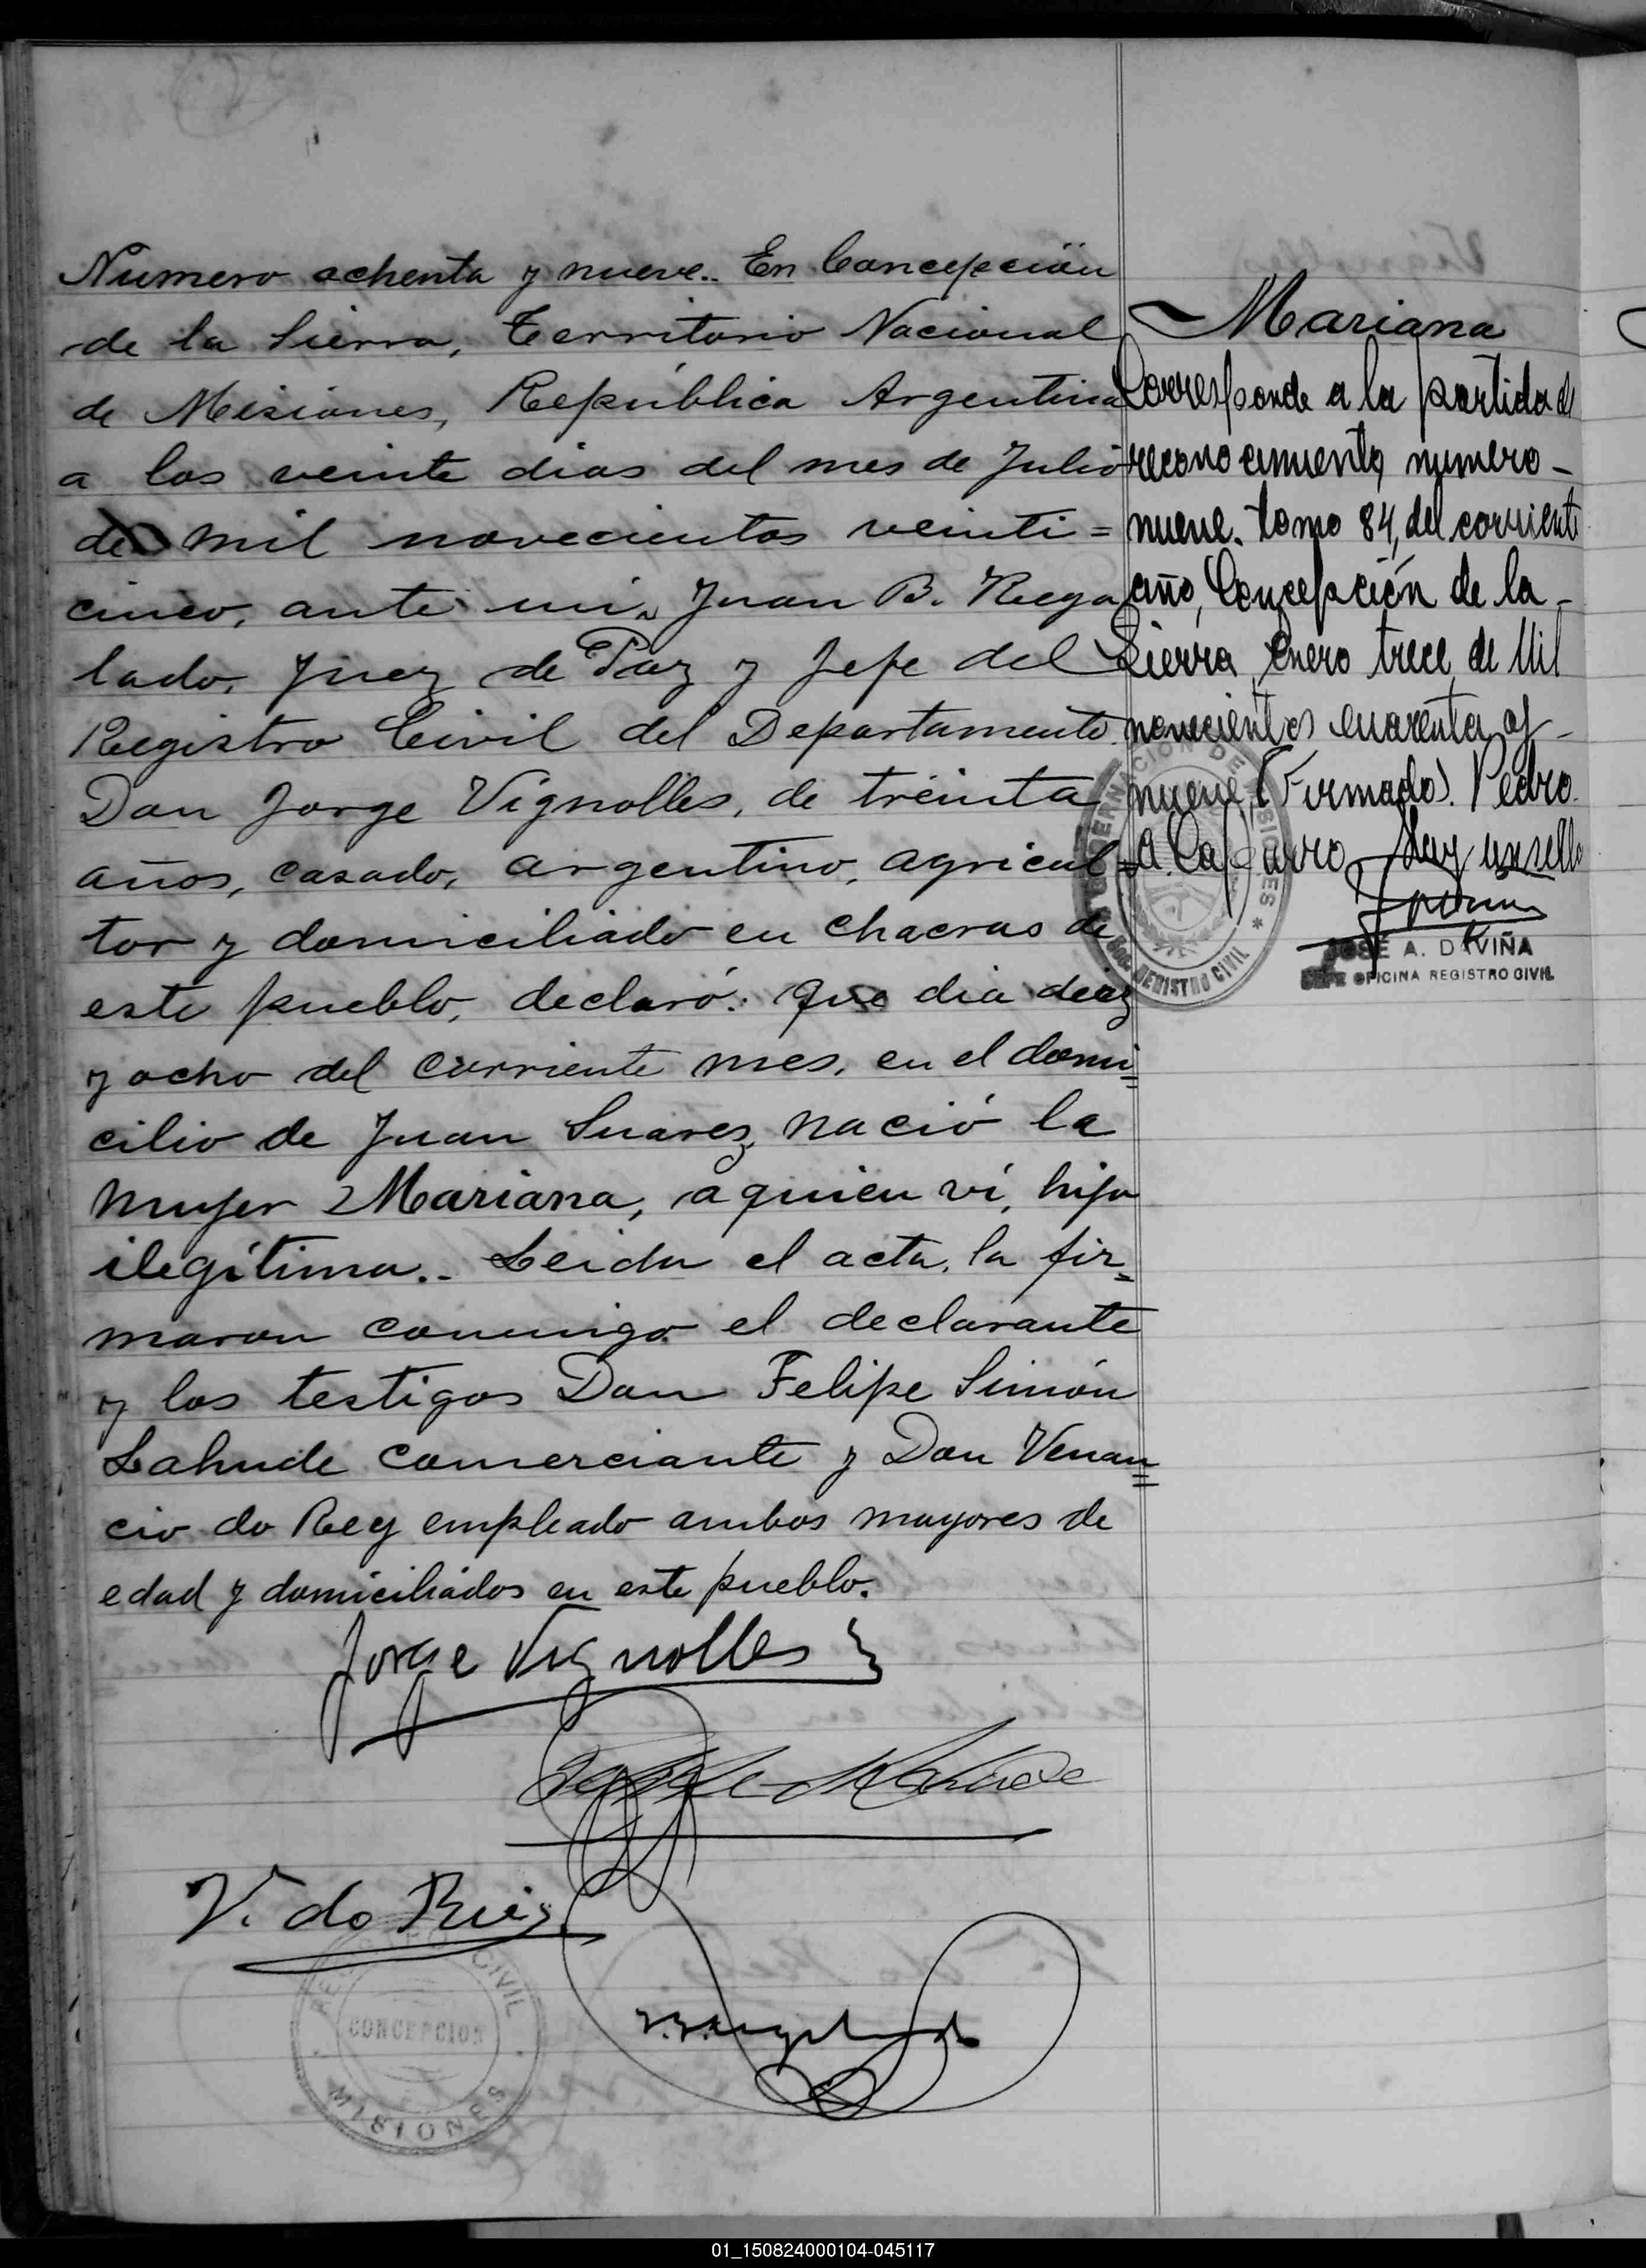 Numero ochenta y nueve.. En Concepción
de la Sierra, Territorio Nacional
de Misiones, República Argentina
a los veinte dias del mes de Julio
de mil novecientos veinti=
cinco, ante mi, Juan B. Rega
lado, Juez de Paz y Jefe del
Registro Civil del Departamento
Don Jorge Vignolles, de treinta
años, casado, argentino, agricul=
tor y domiciliado en chacras de
este pueblo, declaró: Que dia deiz
y ocho del corriente mes, en el domi=
cilio de Juan Suarez, nació la
mujer Mariana, a quien ví, hija
ilegítima.. Leida el acta, la fir=
maron conmigo el declarante
y los testigos Don Felipe Simón
Lahude comerciante y Don Venan=
cio do Rey empleado ambos mayores de
edad y domiciliados en este pueblo.
Jorge Vignolles
V. do Rey
REGISTRO CIVIL
CONCEPCION
MISIONES
Mariana
Corresponde a la partida de
reconocimiento, numero -
nueve. tomo 84, del corriente
año, Concepción de la -
Sierra, Enero trece de Mil
novecientos cuarenta y -
nueve, (Firmado). Pedro
A. Hay un sello
GOBERNACION DE MISIONES
REGISTRO CIVIL
JOSÉ A. DAVIÑA
JEFE OFICINA REGISTRO CIVIL
01_150824000104-045117